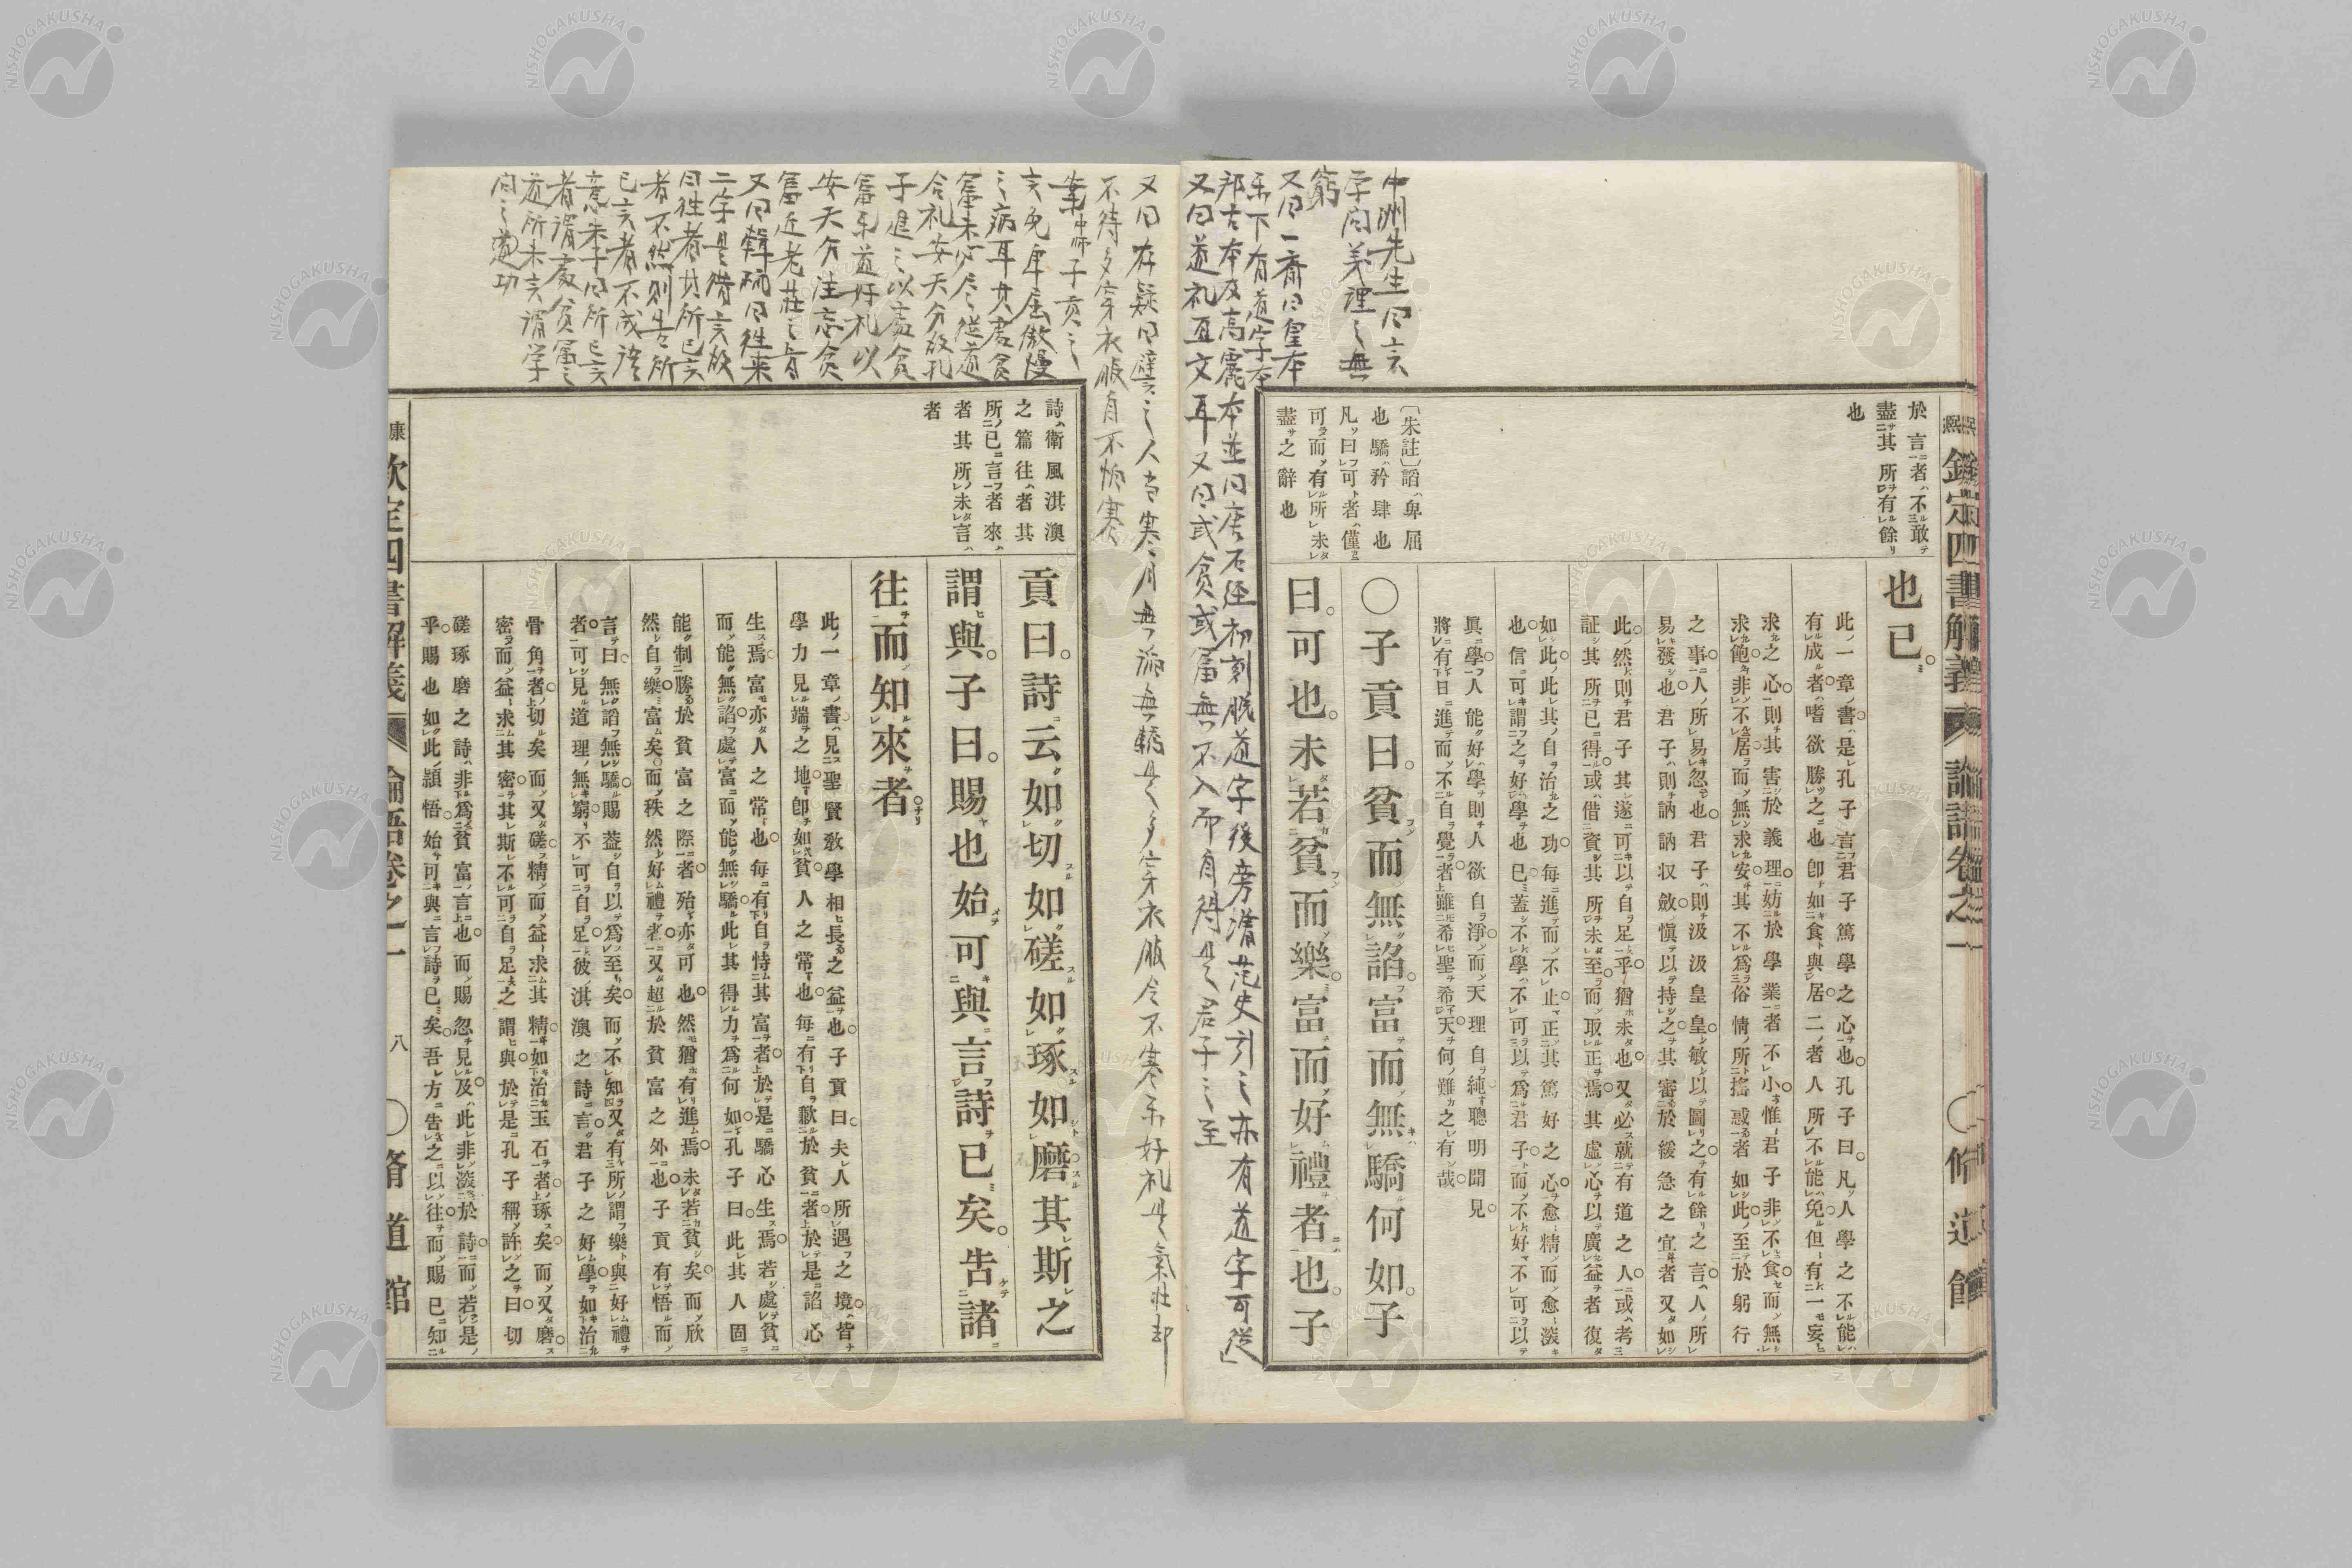 中洲先生曰言
学問義理之無
窮
又曰一斎曰皇本
楽下有道字本
邦古本及高麗本並同唐石経初刻脱道字後旁添
史引之亦有道字可従
又曰道礼互文耳又曰或貧或富無入而自得是君子之至
於言者不敢
盡其所有餘
也
〔朱註〕諂卑屈
也驕矜肆也
凡曰可者僅
可而有所未
盡之辭也
康熙欽定四書解義 論語卷之一 〇脩道館
也已
此一章書是孔子言君子篤學之心也孔子曰凡人學之不能
有成者嗜欲勝之也卽如食與居二者人所不能免但有一妄
求之心則其害於義理妨於學業者不小惟君子非不食而無
求飽非不居而無求安其不爲俗情所搖惑者如此至於躬行
之事人所易忽也君子則汲汲皇皇敏以圖之有餘之言人所
易發也君子則訥訥収斂愼以持之其審於緩急之宜者又如
此然則君子其遂可以自足乎猶未也又必就有道之人或考
証其所已得或借資其所未至而取正焉其虛心以廣益者復
如此此其自治之功每進而不止正其篤好之心愈精而愈深
也信可謂之好學也已蓋不學不可以爲君子而不好不可以
眞學人能好學則人欲自淨而天理自純聰明聞見
將有日進而不自覺者雖希聖希天何難之有哉
〇子貢曰貧而無諂富而無驕何如子
曰可也未若貧而樂富而好禮者也子
不待多穿衣服自不怕寒
筆中师子貢之
言免卑屈傲慢
之病耳其處貧
富未必尽従道
合礼安天分故孔
子進之以處貧
富楽道好礼以
安天分注忘貧
富近老荘之旨
又曰輯疏曰往来
二字是借言故
曰往者其所已言
者不然則告所
已言者不成語
意朱子曰所已言
者謂處貧富之
道所未言謂学
問之功
詩衛風淇澳
之篇往者其
所已言者來
者其所未言
者
貢曰詩云如切如磋如琢如磨其斯之
謂與子曰賜也始可與言詩已矣告諸
往而知來者
此一章書見聖賢敎學相長之益也子貢曰夫人所遇之境皆
學力見端之地卽如貧人之常也每有自歉於貧者於是諂心
生焉富亦人之常也每有自恃其富者於是驕心生焉若處貧
而能無諂處富而能無驕此其得力爲何如孔子曰此其人固
能制勝於貧富之際者殆亦可也然猶有進焉未若貧矣而欣
然自樂富矣而秩然好禮者又超於貧富之外也子貢有悟而
言曰無諂無驕賜蓋自以爲至矣而不知又有所謂樂與好禮
者可見道理無窮不可自足彼淇澳之詩言君子之好學如治
骨角者切矣而又磋精而益求其精如治玉石者琢矣而又磨
密而益求其密其斯不可自足之謂與於是孔子稱許之曰切
磋琢磨之詩非爲貧富言也而賜忽見及此非深於詩而若是
乎賜也如此頴悟始可與言詩已矣吾方告之以往而賜已知
康 欽定四書解義 論語卷之一 八 〇脩道館